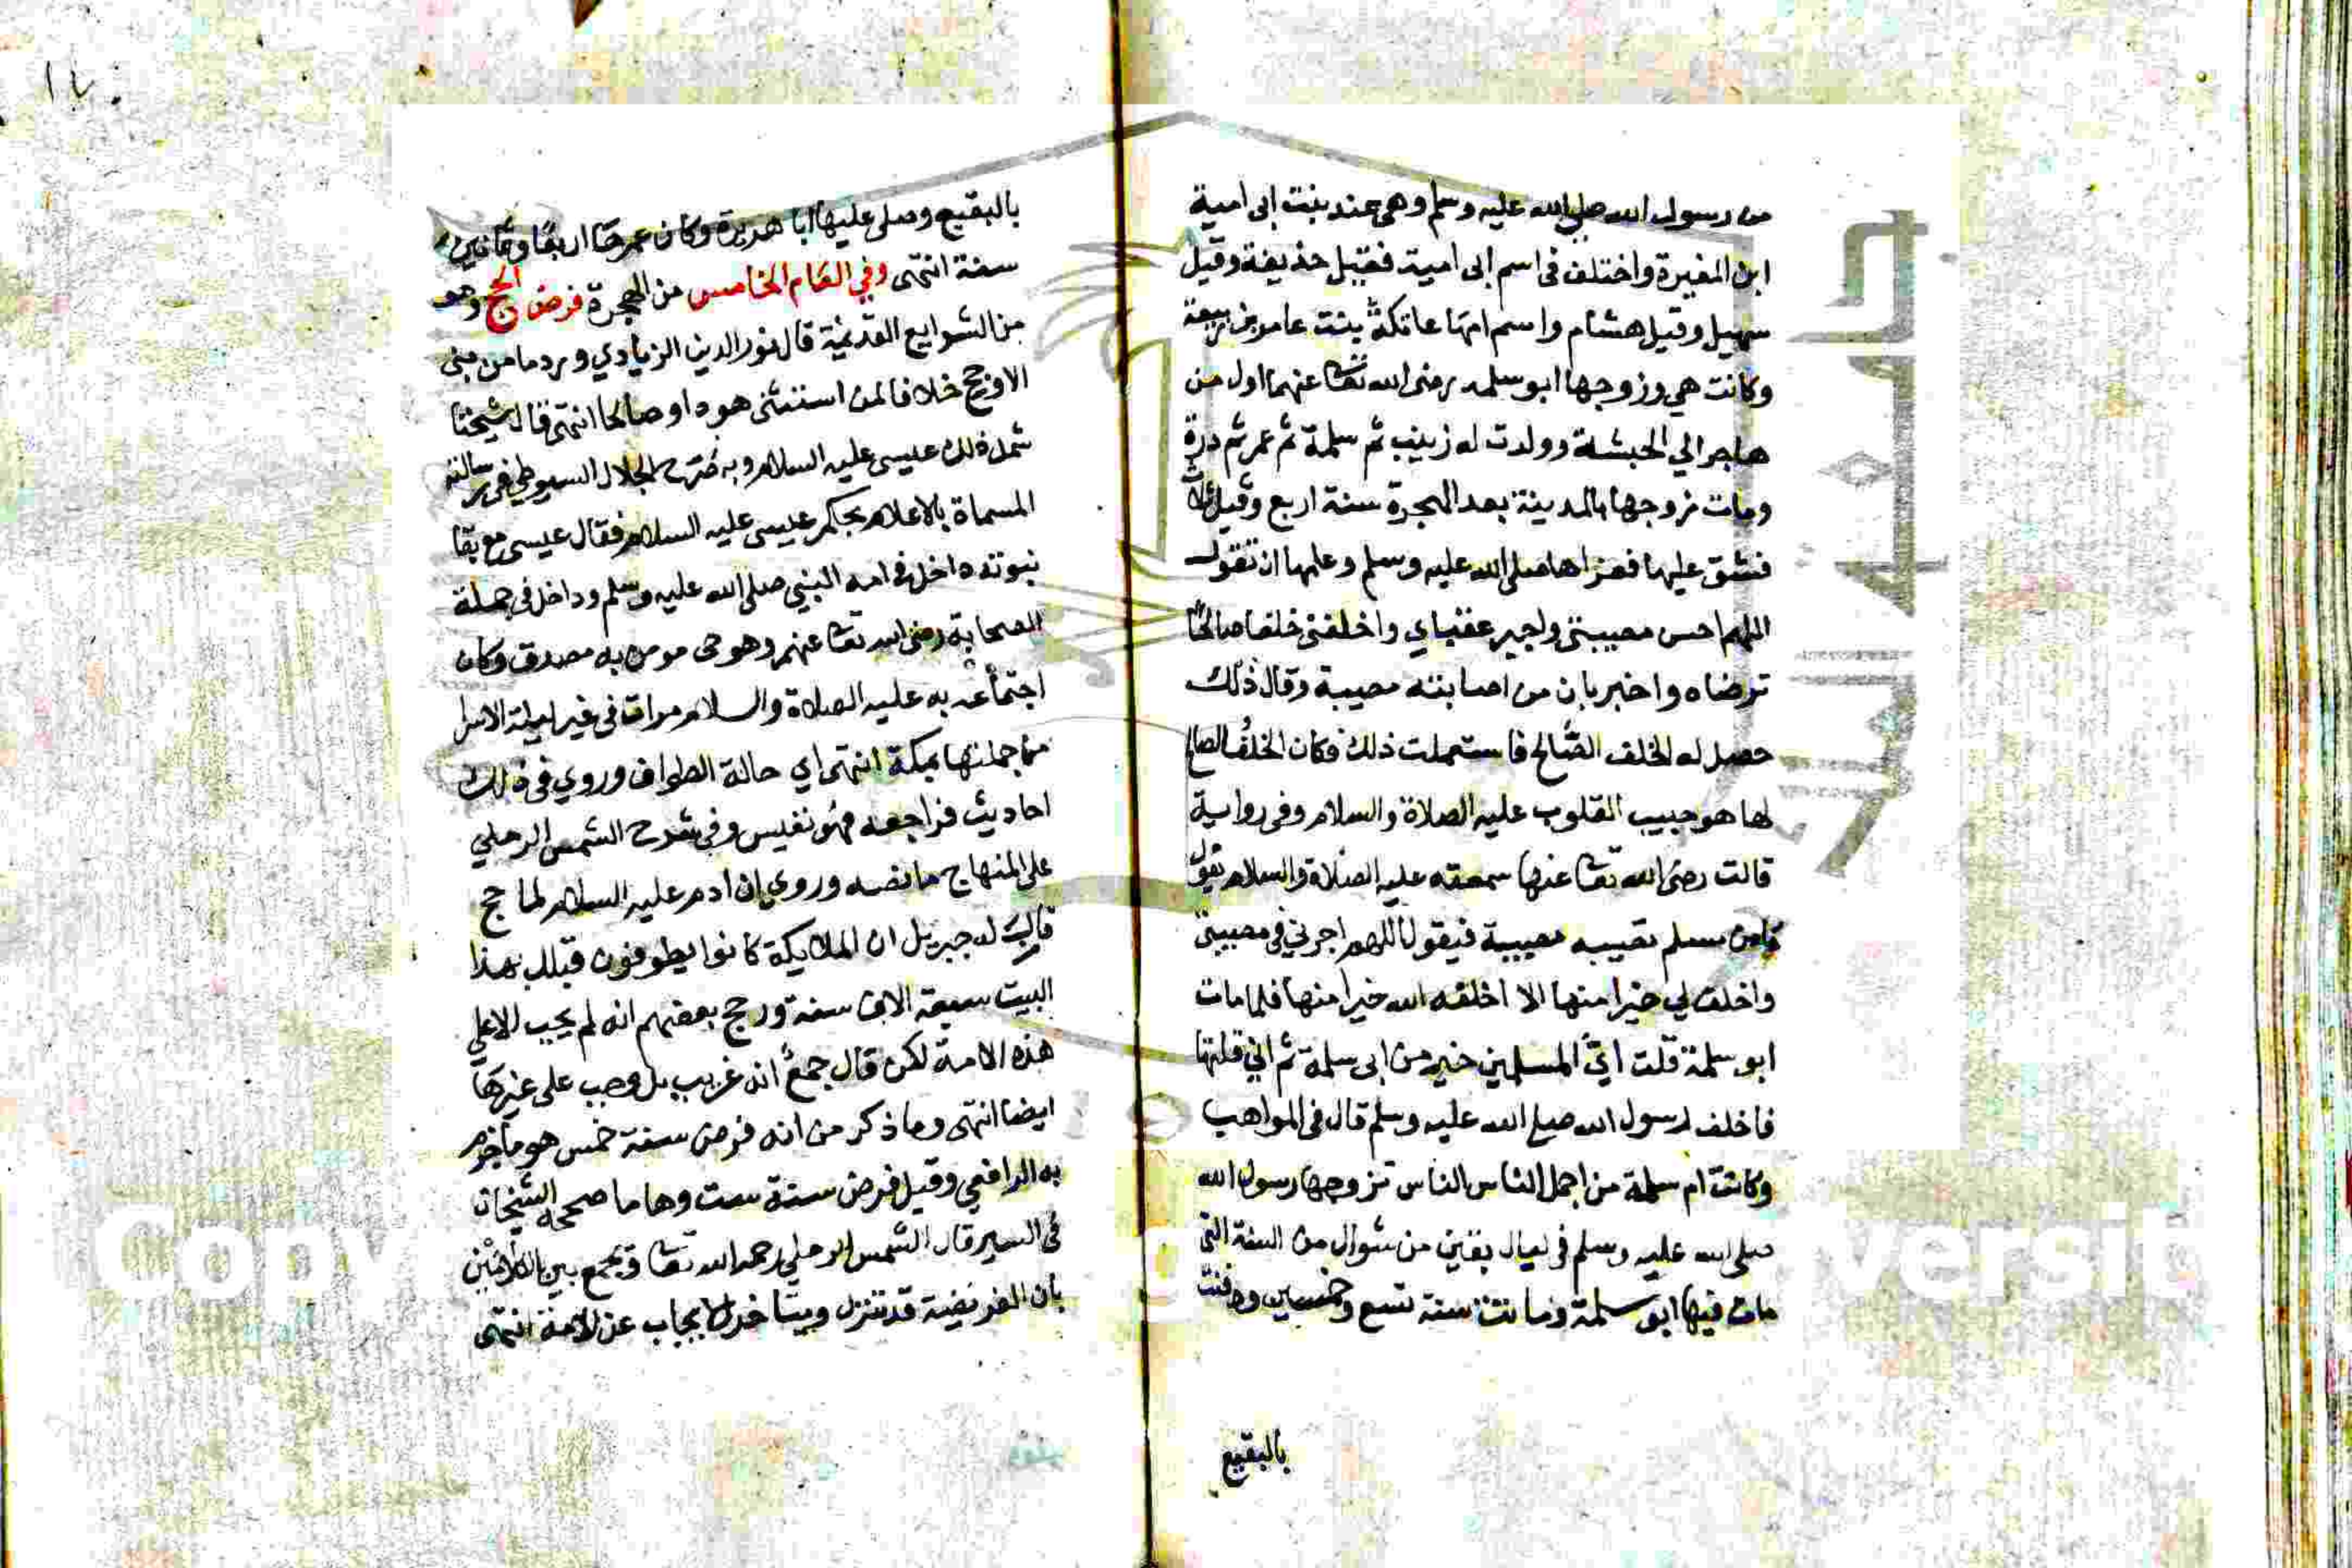 من رسول الله صلى الله عليه وسلم وهي هند بنت ابى امية
ابن المغيرة واختلف فى اسم ابى امية فقيل حذيفة وقيل
سهيل وقيل هشام واسم امها عاتكة بنت عامر بن ربيعة
وكانت هي وزوجها ابو سلمه رضى الله تعا عنهما اول من
هاجر الي الحبشة وولدت له زينب ثم سلمة ثم عمر ثم درة
ومات زوجها بالمدينة بعد الهجرة سنة اربع وقيل ثلاث
فشق عليها فعزاها صلى الله عليه وسلم وعلمها ان تقول
اللهم احسن مصيبتى واجبر عقباي واخلفنى خلفا صالحا
ترضاه واخبر بان من اصابته مصيبة وقال ذلك
حصل له الخلف الصالح فاستعملت ذلك فكان الخلف الصالح
لها هو حبيب القلوب عليه الصلاة والسلام وفى رواية
قالت رضى الله تعا عنها سمعته عليه الصلاة والسلام يقول
ما من مسلم تصيبه مصيبة فيقول اللهم اجرني في مصيبتى
واخلف لي خيرا منها الا اخلفه الله خيرا منها فلما مات
ابو سلمة قلت اي المسلمين خير من ابى سلمة ثم اني قلتها
فاخلف رسول الله صلى الله عليه وسلم قال فى المواهب
وكانت ام سلمة من اجمل الناس الناس تزوجها رسول الله
صلى الله عليه وسلم فى ليال بقين من شوال من السنة التي
مات فيها ابو سلمة وماتت سنة تسع وخمسين ودفنت
بالبقيع
بالبقيع وصلى عليها ابا هريرة وكان عمرها اربعا وثمانين
سنة انتهى وفي العام الخامس من الهجرة فرض الحج وهو
من الشرايع القديمة قال نور الدين الزيادي ورد ما من نبى
الا وحج خلافا لمن استثنى هودا وصالحا انتهى قال شيخنا
شمل ذلك عيسى عليه السلام وبه صرح الجلال السيوطي في رسالته
المسماة بالاعلام بحكم عيسى عليه السلام فقال عيسى مع بقا
نبوته داخل في امه النبي صلى الله عليه وسلم وداخل في جملة
الصحابة رضى الله تعا عنهم وهو حى مومن به مصدق وكان
اجتماعه به عليه الصلاة والسلام مرات في غير ليلة الاسرا
من جملتها بمكة انتهى اي حالة الطواف وروي في ذلك
احاديث فراجعه فهو نفيس وفى شرح الشمس الرملي
على المنهاج ما نصه وروي ان ادم عليه السلام لما حج
قال له جبريل ان الملايكة كانوا يطوفون قبلك بهذا
البيت سبعة الاف سنة ورجح بعضهم انه لم يجب الا على
هذه الامة لكن قال جمع انه غريب بل وجب على غيرها
ايضا انتهى وما ذكر من انه فرض سنة خمس هو ما جزم
به الرافعي وقيل فرض سنة ست وها ما صححه الشيخان
فى السير قال الشمس الرملي رحمه الله تعا ويجمع بين الكلامين
بان الفريضة قد تنزل ويتاخر الايجاب عن الامة انتهى